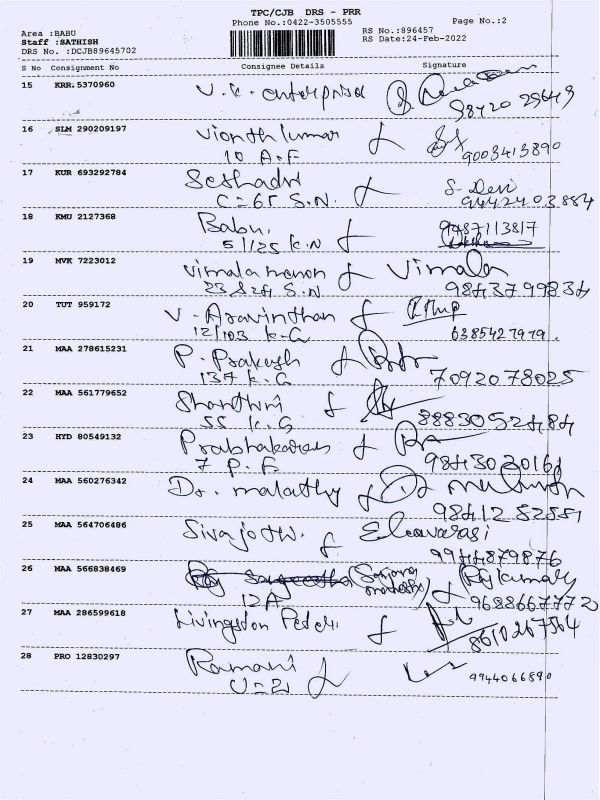 TPC/CJB DRS - PRR
Phone No.:0422-3505555
Page No.:2
Area :BABU
RS No.:896457
Staff :SATHISH
RS Date:24-Feb-2022
DRS No. :DCJB89645702
S No Consignment No Consignee Details Signature
15 KRR 5370960 V.K. enterprise
98420 29649
16 SLM 290209197 Vionthkumar
10 A.F 9003413890
17 KUR 693292784 Seshadri S. Devi
C=65 S.N. 9442403884
18 KMU 2127368 Babu. 9487113817
51/125 K.N
19 MVK 7223012 Vimala menon Vimala
23 & 24 S.N 9843799834
20 TUT 959172 V. Aravinthan
12/103 K.G 6385427979.
21 MAA 278615231 P. Prakash
137 K.G 7092078025
22 MAA 561779652 Shanthini
55 K.G 8883052484
23 HYD 80549132 Prabhakaran
7 P.F 984302016
24 MAA 560276342 Dr. malathy Dr
98412 8288
25 MAA 564706486 Sivajothi. Elavarasi
9944879876
26 MAA 566838469 Rajkumar
12A 9688667772
27 MAA 286599618 Livingston
8610267564
28 PRO 12830297 Ramani
U=21 9944066890